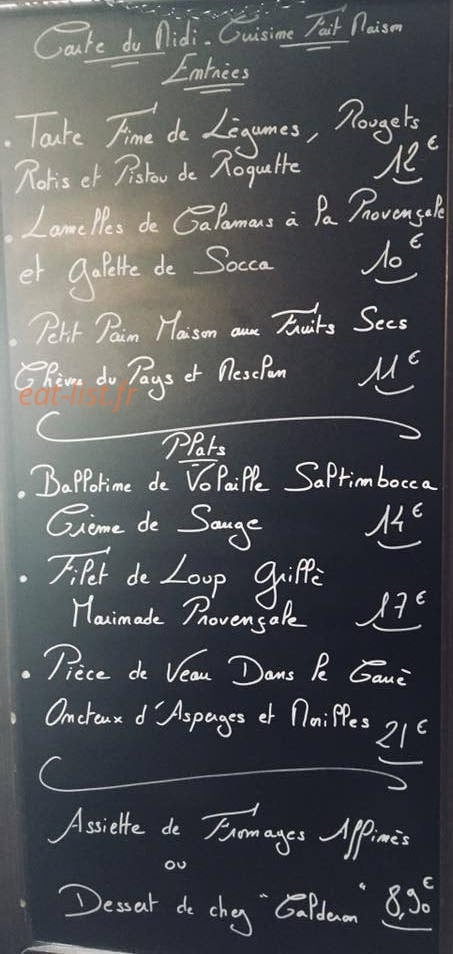 Carte du Midi - Cuisine Fait Maison
Entrées
• Tarte Fine de Légumes, Rougets
Rotis et Pistou de Roquette 12€
• Lamelles de Calamars à la Provençale
et galette de Socca 10€
• Petit Pain Maison aux Fruits Secs
Chèvre du Pays et Mesclun 11€
eat-list.fr
Plats
• Ballotine de Volaille Saltimbocca
Crème de Sauge 14€
• Filet de Loup grillé
Marinade Provençale 17€
• Pièce de Veau Dans le Carré
Onctueux d'Asperges et Morilles 21€
Assiette de Fromages Affinés
ou
Dessert de chez "Calderon" 8,90€